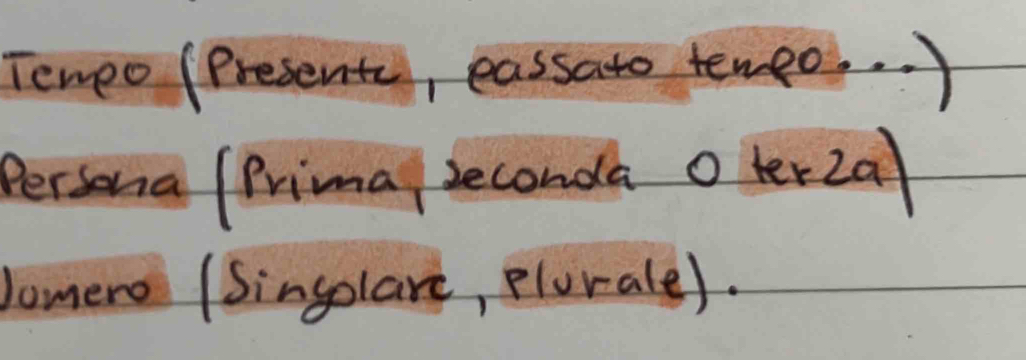 Tempo (Presente, passato tempo...)
Persona (Prima, seconda o terza)
Numero (Singolare, plurale).